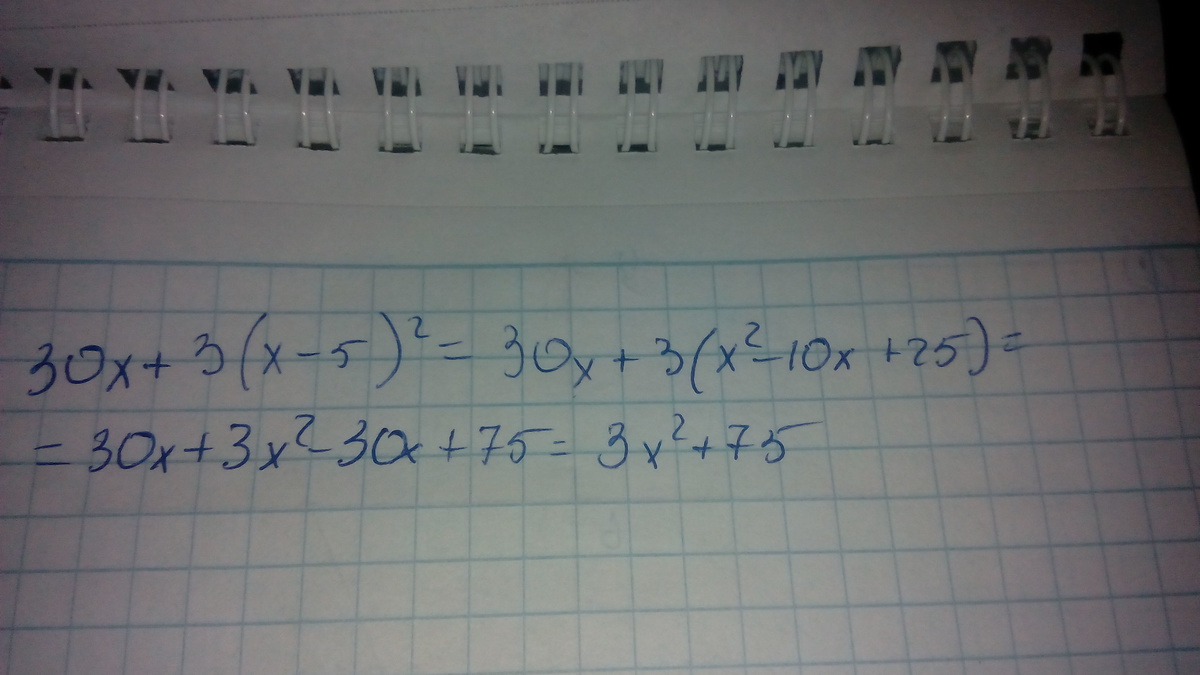 30x + 3(x - 5)² = 30x + 3(x² - 10x + 25) =
= 30x + 3x² - 30x + 75 = 3x² + 75